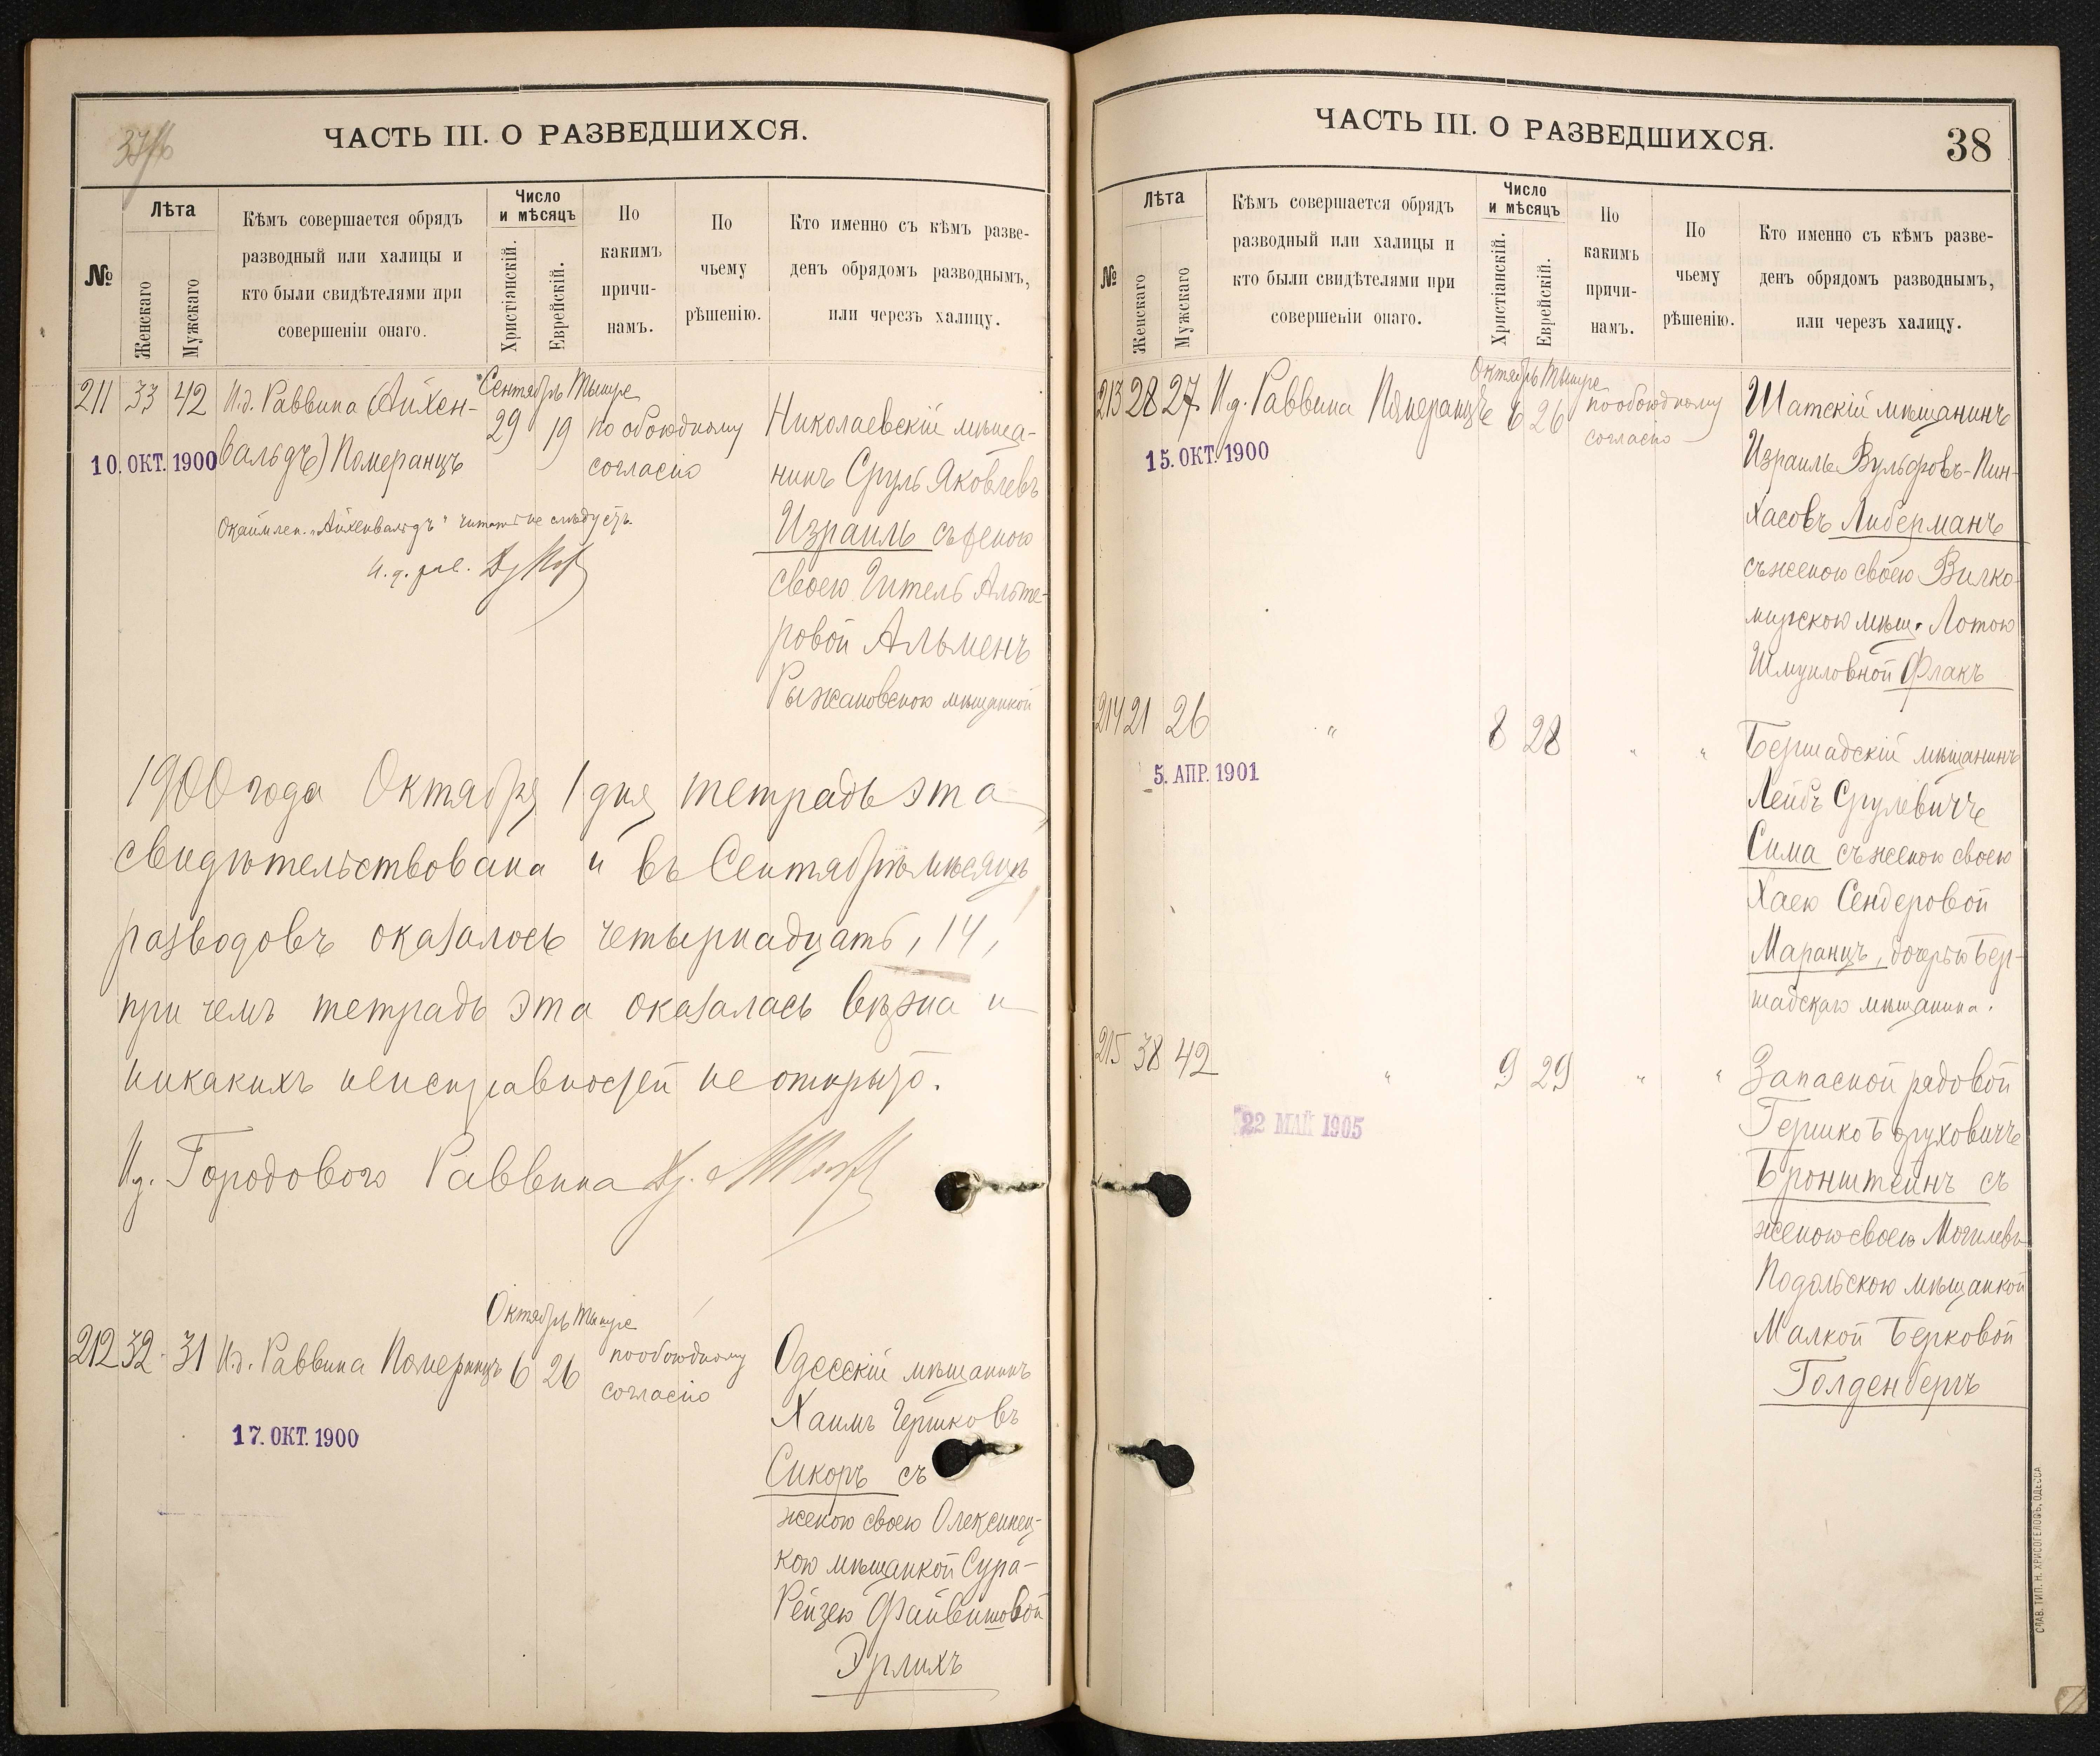 37/6
ЧАСТЬ III. О РАЗВЕДШИХСЯ.
№
Лѣта
Женскаго
Мужскаго
Кѣмъ совершается обрядъ
разводный или халицы и
кто были свидѣтелями при
совершеніи онаго.
Число
и мѣсяцъ
Христіанскій.
Еврейскій.
По
какимъ
причи-
намъ.
По
чьему
рѣшенію.
Кто именно съ кѣмъ разве-
денъ обрядомъ разводнымъ,
или черезъ халицу.
211 33 42 И.д. Раввина (Айхен-
вальдъ) Померанцъ
10. ОКТ. 1900
Сентябрь Тишре
29 19
по обоюдному
согласію
Николаевскій мѣща-
нинъ Сруль Яковлевъ
Израиль съ женою
своею Гитель Альте-
ровой Альменъ
Рыжановскою мѣщанкой
Окаймлен. „Айхенвальдъ" читать не слѣдуетъ.
И. д. рав.
1900 года Октября 1 дня тетрадь эта
свидѣтельствована и въ Сентябрѣ мѣсяцѣ
разводовъ оказалось четырнадцать, 14,
при чемъ тетрадь эта оказалась вѣрна и
никакихъ неисправностей не открыто.
И.д. Городового Раввина Др.
212 32 31 И.д. Раввина Померанцъ
17. ОКТ. 1900
Октябрь Тишре
6 26
по обоюдному
согласію
Одесскій мѣщанинъ
Хаимъ Гершковъ
Сикоръ съ
женою своею Олексинец-
кою мѣщанкой Сура-
Рейзею Файвишовой
Эрлихъ
ЧАСТЬ III. О РАЗВЕДШИХСЯ.
38
№
Лѣта
Женскаго
Мужскаго
Кѣмъ совершается обрядъ
разводный или халицы и
кто были свидѣтелями при
совершеніи онаго.
Число
и мѣсяцъ
Христіанскій.
Еврейскій.
По
какимъ
причи-
намъ.
По
чьему
рѣшенію.
Кто именно съ кѣмъ разве-
денъ обрядомъ разводнымъ,
или черезъ халицу.
213 28 27 И.д. Раввина Померанцъ
15. ОКТ. 1900
Октябрь Тишре
6 26
по обоюдному
согласію
Шатскій мѣщанинъ
Израиль Вульфовъ-Пин-
хасовъ Либерманъ
съ женою своею Вилко-
мирскою мѣщ. Лотою
Шмуиловной Флакъ
214 21 26 " 8 28 " "
5. АПР. 1901
Бершадскій мѣщанинъ
Лейбъ Срулевичъ
Сима съ женою своею
Хаею Сендеровой
Маранцъ, дочерью Бер-
шадскаго мѣщанина.
215 38 42 " 9 29 " "
22 МАЙ 1905
Запасной рядовой
Гершко Боруховичъ
Бронштейнъ съ
женою своею Могилевъ-
Подольскою мѣщанкой
Малкой Берковой
Голденбергъ
СЛАВ. ТИП. Н. ХРИСОГЕЛОСЪ, ОДЕССА